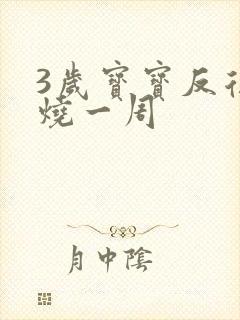 3歲寶寶反
燒一周
月中陰